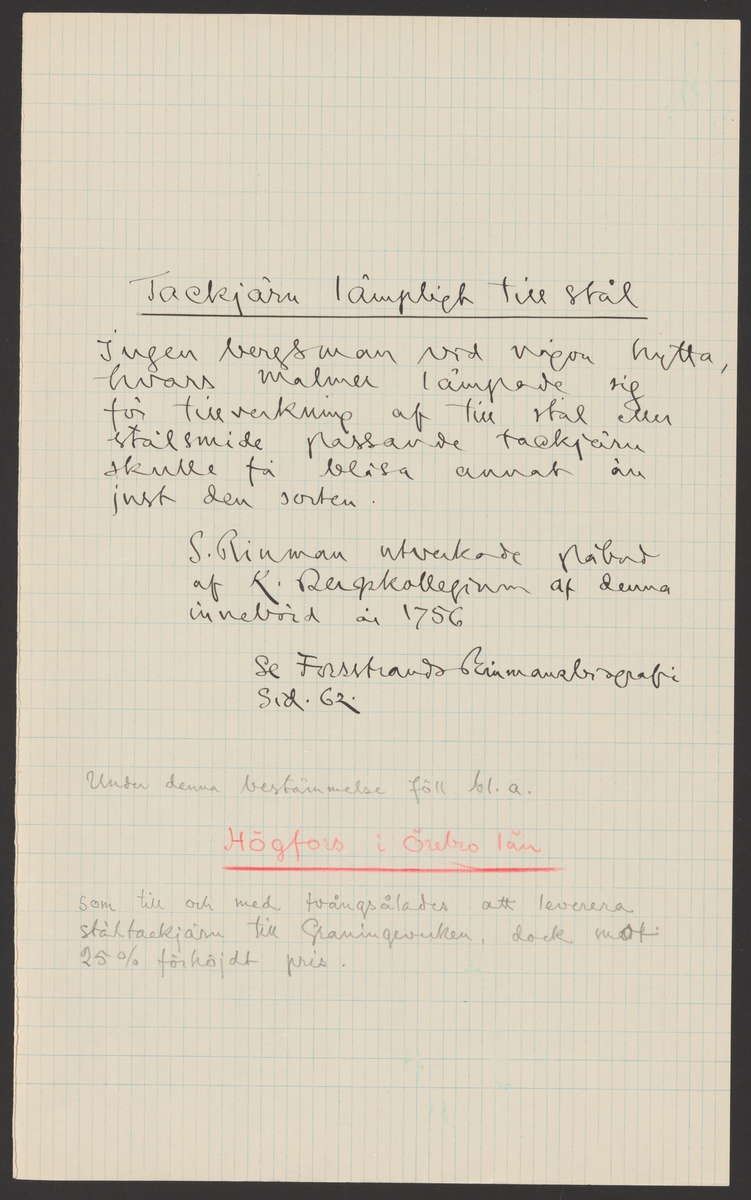 Tackjärn lämpligt till stål
Ingen bergsman vid någon hytta,
hvars malmer lämpade sig
för tillverkning af till stål eller
stålsmide passande tackjärn
skulle få blåsa annat än
just den sorten.
S. Rinman utverkade påbud
af K. Bergskollegium af denna
innebörd år 1756
Se Forsstrands Rinmansbiografi
Sid. 62.
Under denna bestämmelse föll bl. a.
Högfors i Örebro län
som till och med tvångsålades att leverera
ståltackjärn till Graningeverken, dock mot
25% förhöjdt pris.